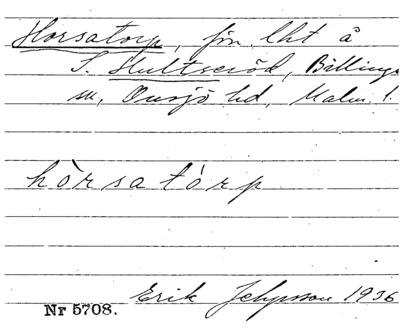 Horsatorp, fin. lht å
S. Hultseröd, Billinge
sn, Onsjö hd, Malm. l.
hòrsatórp
Erik Jeppsson 1936
Nr 5708.